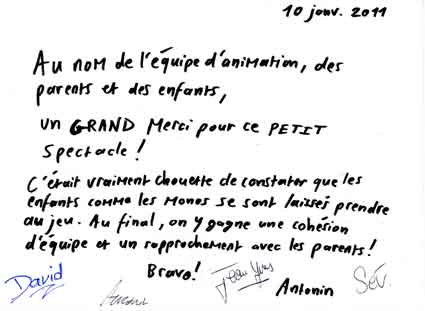 10 janv. 2011
Au nom de l'équipe d'animation, des
parents et des enfants,
un GRAND Merci pour ce PETIT
Spectacle !
C'était vraiment chouette de constater que les
enfants comme les monos se sont laissés prendre
au jeu. Au final, on y gagne une cohésion
d'équipe et un rapprochement avec les parents !
Bravo !
David
Jean Yves
Antonin
Sév.